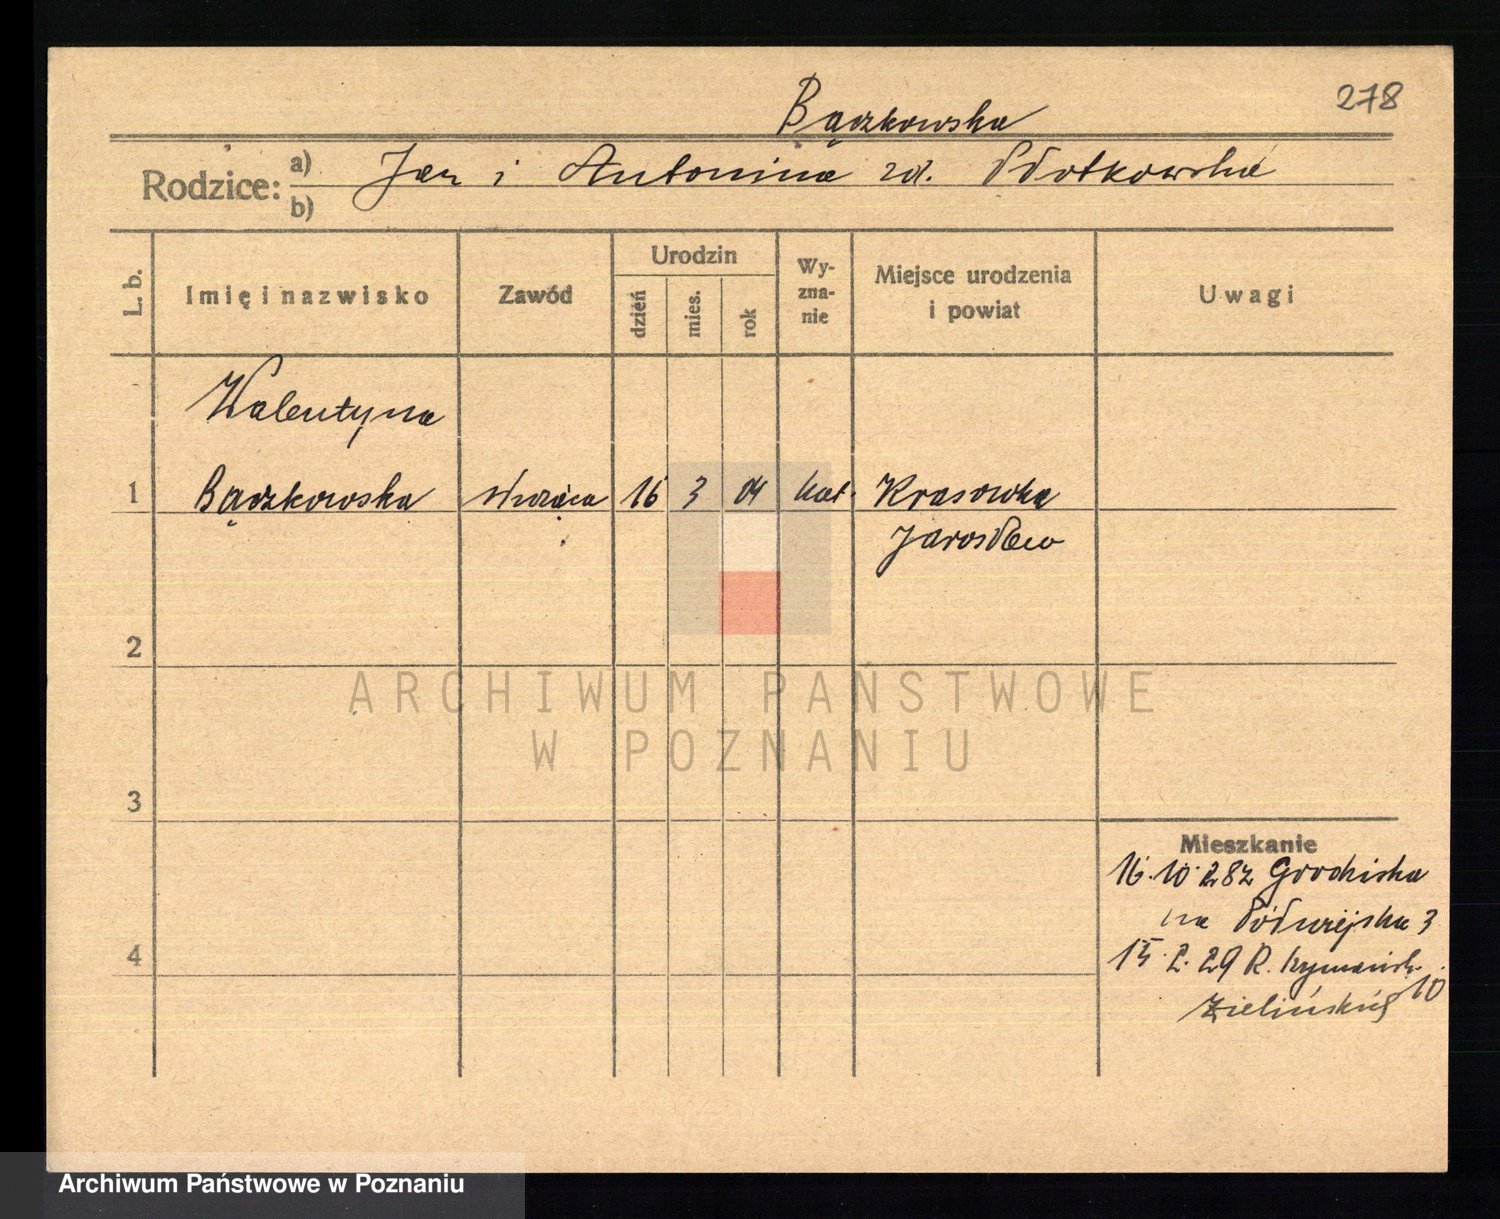 278
Bączkowska
Rodzice: a) Jan i Antonina zd.
b)
L. b. Imię i nazwisko Zawód Urodzin dzień mies. rok Wy-zna-nie Miejsce urodzenia i powiat Uwagi
Walentyna
1 Bączkowska służąca 16 3 04 kat. Krasowka
Jarosław
2
ARCHIWUM PAŃSTWOWE
W POZNANIU
3
Mieszkanie
16.10.28 z Grodziska
na 3
4
15.2.29 R.
Zielińskiej 10
Archiwum Państwowe w Poznaniu